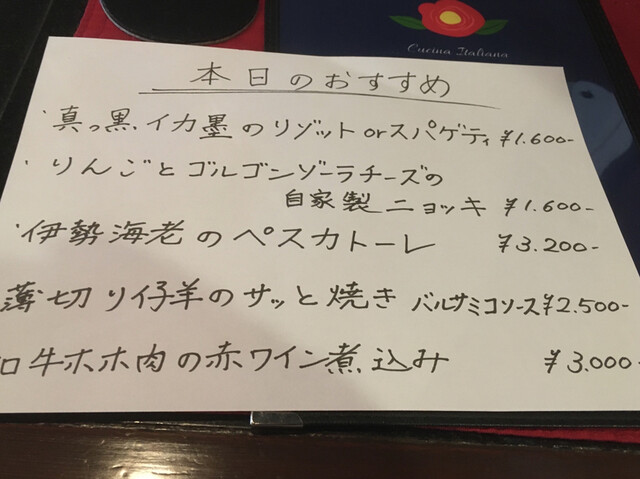 Cucina Italiana
本日のおすすめ
・真っ黒イカ墨のリゾットorスパゲティ ¥1.600-
・りんごとゴルゴンゾーラチーズの
自家製ニョッキ ¥1.600-
・伊勢海老のペスカトーレ ¥3.200-
薄切り仔羊のサッと焼き バルサミコソース¥2.500-
和牛ホホ肉の赤ワイン煮込み ¥3.000-